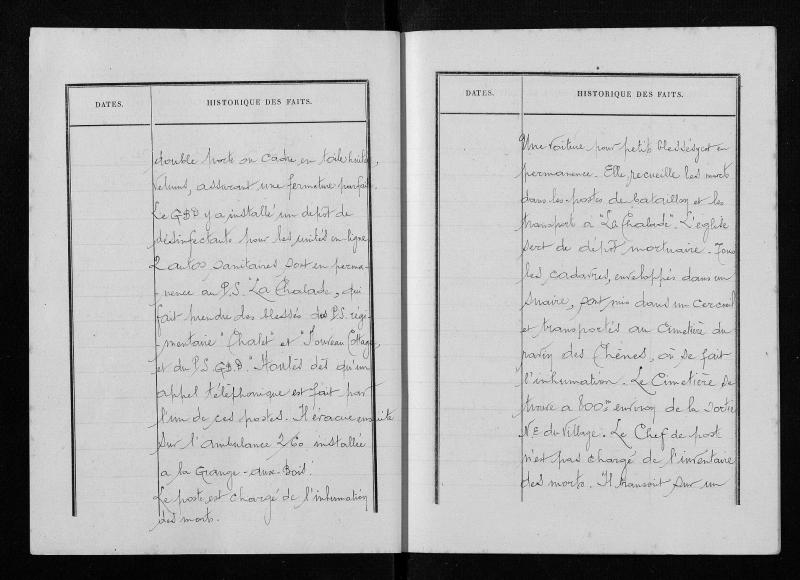 DATES.
HISTORIQUE DES FAITS.
double porte ou cadre en toile huilée,
Velums, assurant une fermeture parfaite
Le GBD y a installé un dépôt de
désinfectants pour les unités en ligne
2 autos sanitaires sont en perma-
-nence au P.S. "La Chalade, qui
fait prendre des blessés des P.S. régi-
-mentaire "Chalet" et "Nouveau Cottage
et du P.S. GBD. " dès qu'un
appel téléphonique est fait par
l'un de ces postes. Il évacue ensuite
sur l'ambulance 2/60 installée
a la Grange-aux-Bois.
Le poste est chargé de l'inhumation
des morts.
DATES.
HISTORIQUE DES FAITS.
Une voiture pour petits blessés y est en
permanence. Elle recueille les morts
dans les postes de bataillon et les
transporte à "La Chalade". L'église
sert de dépôt mortuaire. Tous
les cadavres, enveloppés dans un
suaire, sont mis dans un cercueil
et transportés au Cimetière du
ravin des Chênes, où se fait
l'inhumation. Le Cimetière se
trouve a 800m environ de la sortie
N.E du Village. Le Chef de poste
n'est pas chargé de l'inventaire
des morts. Il transcrit sur un